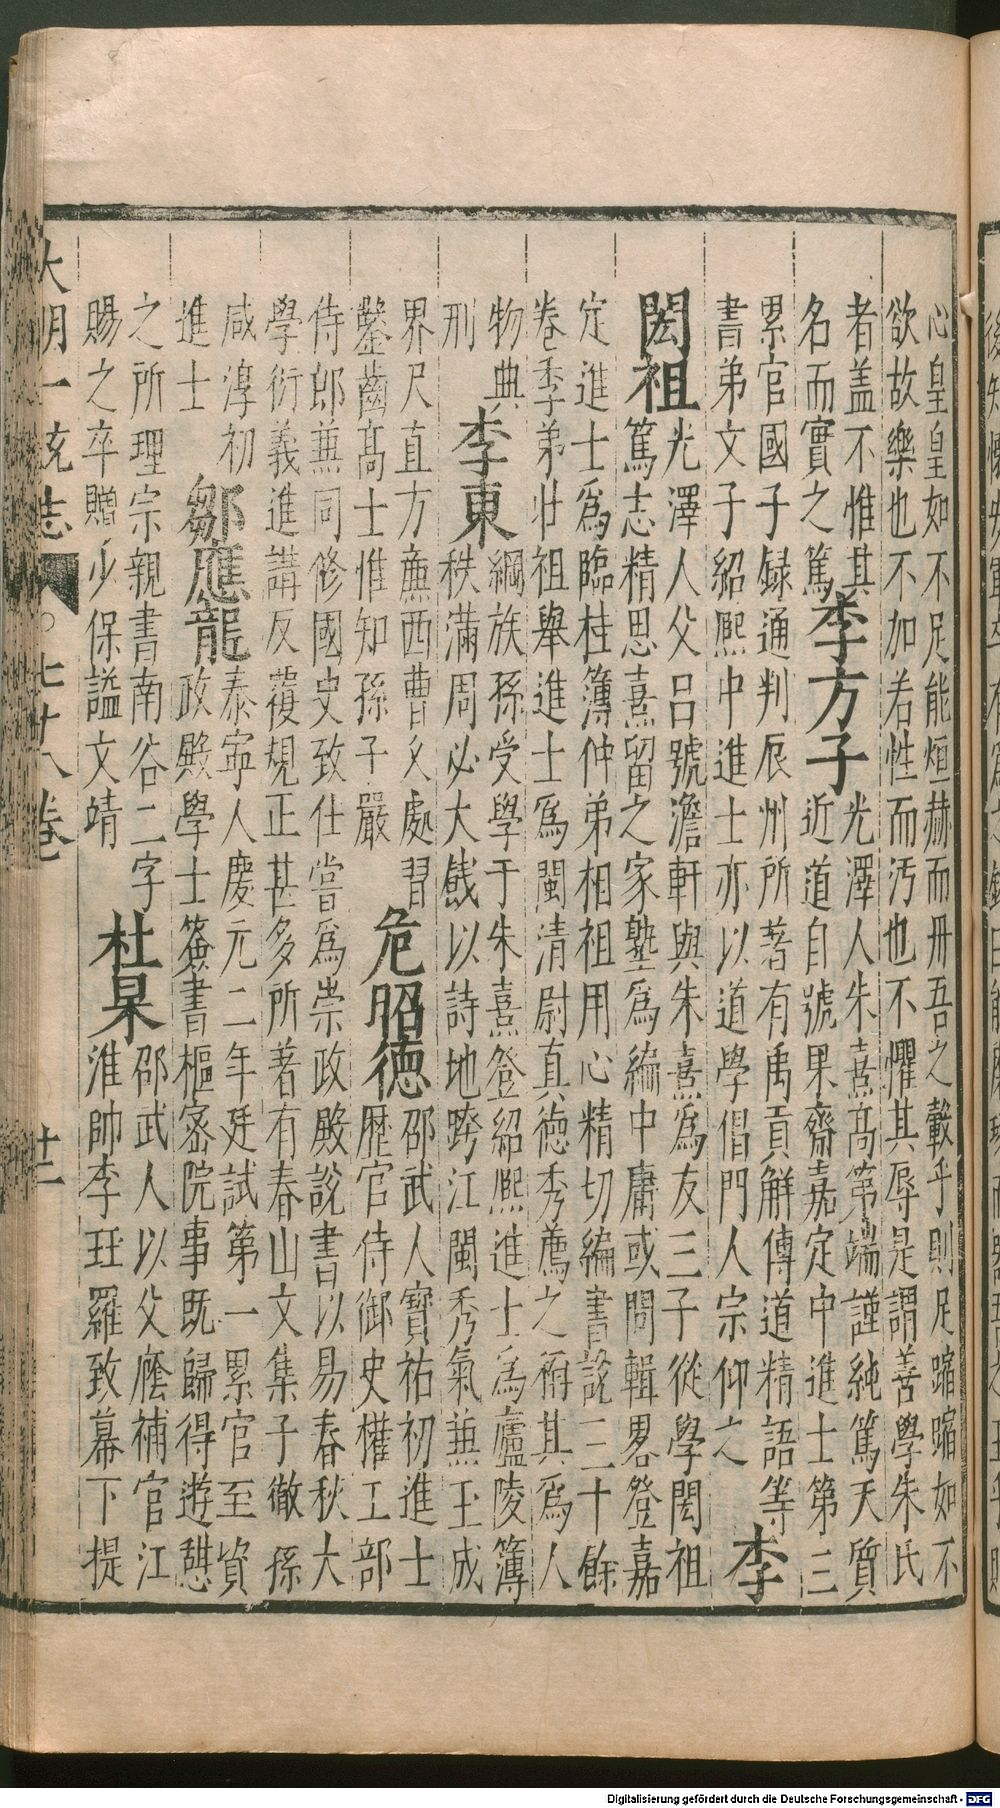 心皇皇如不足能烜赫而冊吾之載乎則足蹜蹜如不
欲故樂也不加若性而汚也不懼其辱是謂善學朱氏
者盖不惟其名而實之篤
李方子
光澤人朱熹高第端謹純篤天質
近道自號果齋嘉定中進士第三
累官國子録通判辰州所著有禹貢解傳道精語等
書弟文子紹熙中進士亦以道學倡門人宗仰之
李
閎祖
光澤人父呂號澹軒與朱熹爲友三子從學閎祖
篤志精思熹留之家塾爲編中庸或問輯畧登嘉
定進士爲臨桂簿仲弟相祖用心精切編書說三十餘
卷季弟壯祖舉進士爲閩清尉真德秀薦之稱其爲人
物典刑
李東
綱族孫受學于朱熹登紹熙進士爲廬陵簿
秩滿周必大餞以詩地跨江閩秀氣兼玉成
界尺直方廉西曹乂處習
鑿齒髙士惟知孫子嚴
危昭德
邵武人寶祐初進士
歷官侍御史權工部
侍郎兼同修國史致仕嘗爲崇政殿說書以易春秋大
學衍義進講反覆規正甚多所著有春山文集子徹孫
咸淳初進士
鄒應龍
泰寧人慶元二年廷試第一累官至資
政殿學士簽書樞密院事既歸得遊憇
之所理宗親書南谷二字
賜之卒贈少保謚文靖
杜杲
邵武人以父廕補官江
淮帥李珏羅致幕下提
大明一統志
○七十八卷
廿二
Digitalisierung gefördert durch die Deutsche Forschungsgemeinschaft - DFG